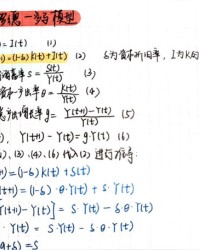 德—玛模型
= I(t) (1)
=(1-δ)K(t)+I(t) (2) δ为资本折旧率，I为K的
S = S(t)/Y(t) (3)
资本产出率 θ = K(t)/Y(t) (4)
增长率 g = Y(t+1)-Y(t)/Y(t) (5)
Y(t+1) - Y(t) = g·Y(t) (6)
(3)、(4)、(6) 代入(2) 进行
=(1-δ)K(t) + S(t)
(t+1) = (1-δ)·θ·Y(t) + S·Y(t)
Y(t+1)-Y(t)] = S·Y(t) - δ·θ·Y(t)
Y(t) = S·Y(t) - δ·θ·Y(t)
g+δ) = S